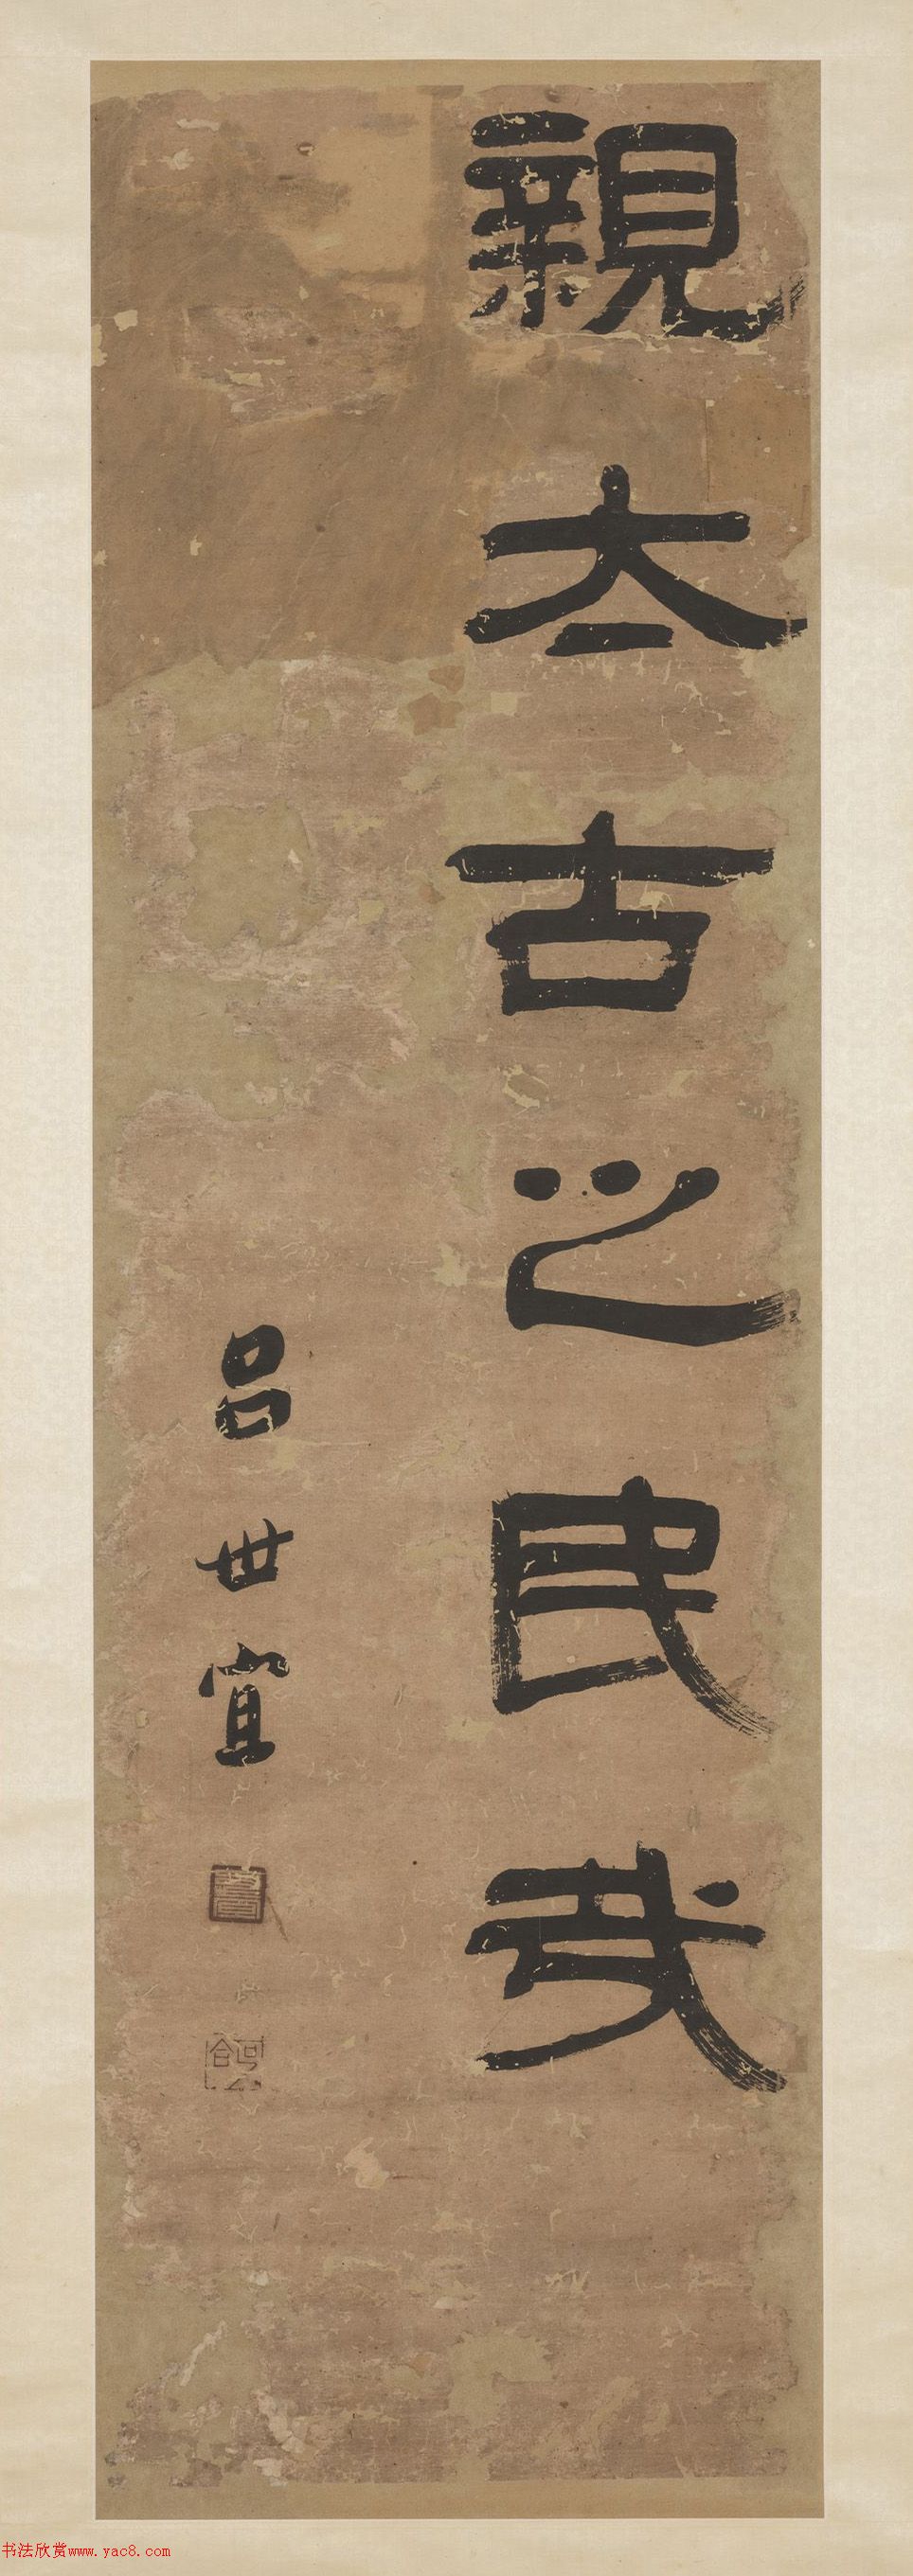 親太古之民哉
吕世宜
书法欣赏www.yac8.com